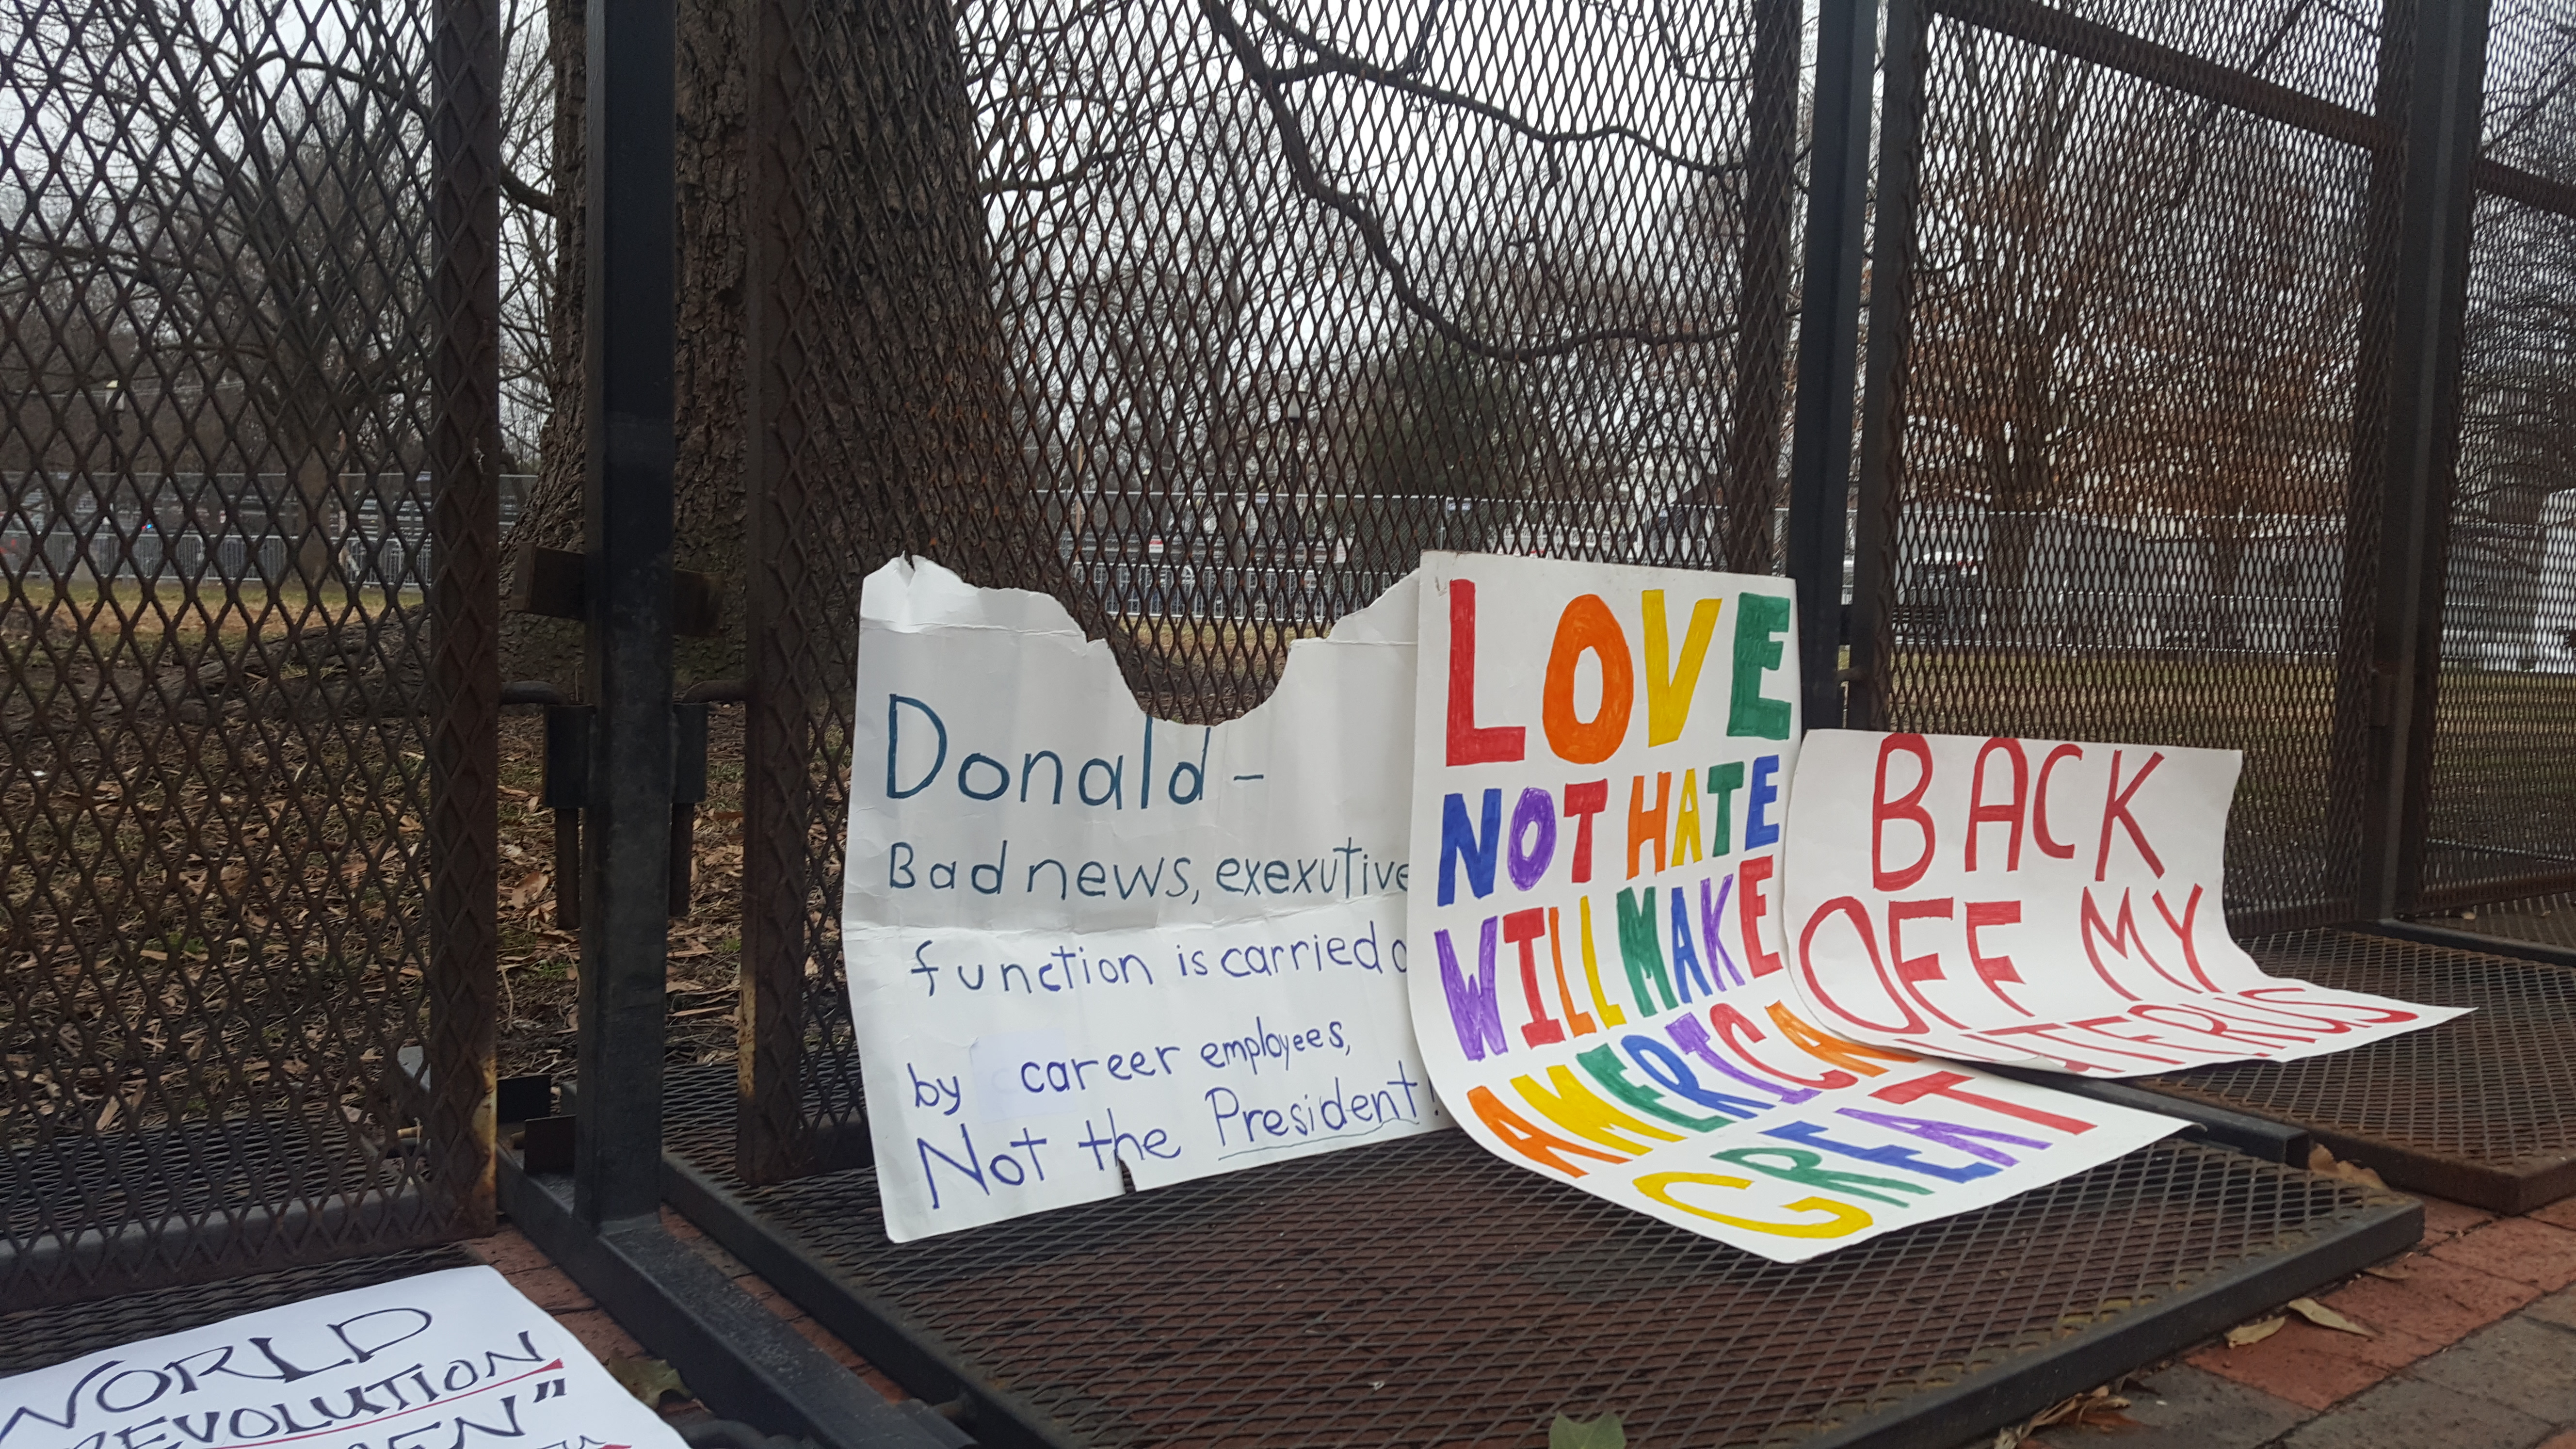 Donald -
Bad news, exexutive
function is carried
by career employees,
Not the President!
LOVE
NOT HATE
WILL MAKE
AMERICAN
GREAT
BACK
OFF MY
WORLD
REVOLUTION